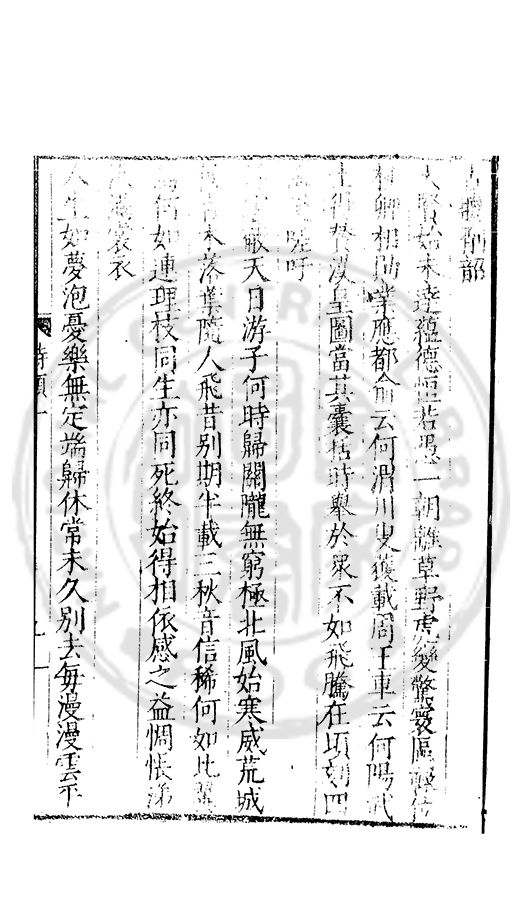 韶
賢始未達蘊德恒若愚一朝離草野虎變驚寰區
卿相助業應都俞云何渭川叟獲載周王車云何陽武
得贊漢皇圖當其囊括時舉於眾不如飛騰在頃刻四
嗟呼
天日游子何時歸關隴無窮極北風始寒威荒城
木落葉隨人飛昔別期半載三秋音信稀何如比翼
何如連理枝同生亦同死終始得相依感之益惆悵涕
裳衣
人生如夢泡憂樂無定端歸休常未久別去每漫漫雲平
詩類一